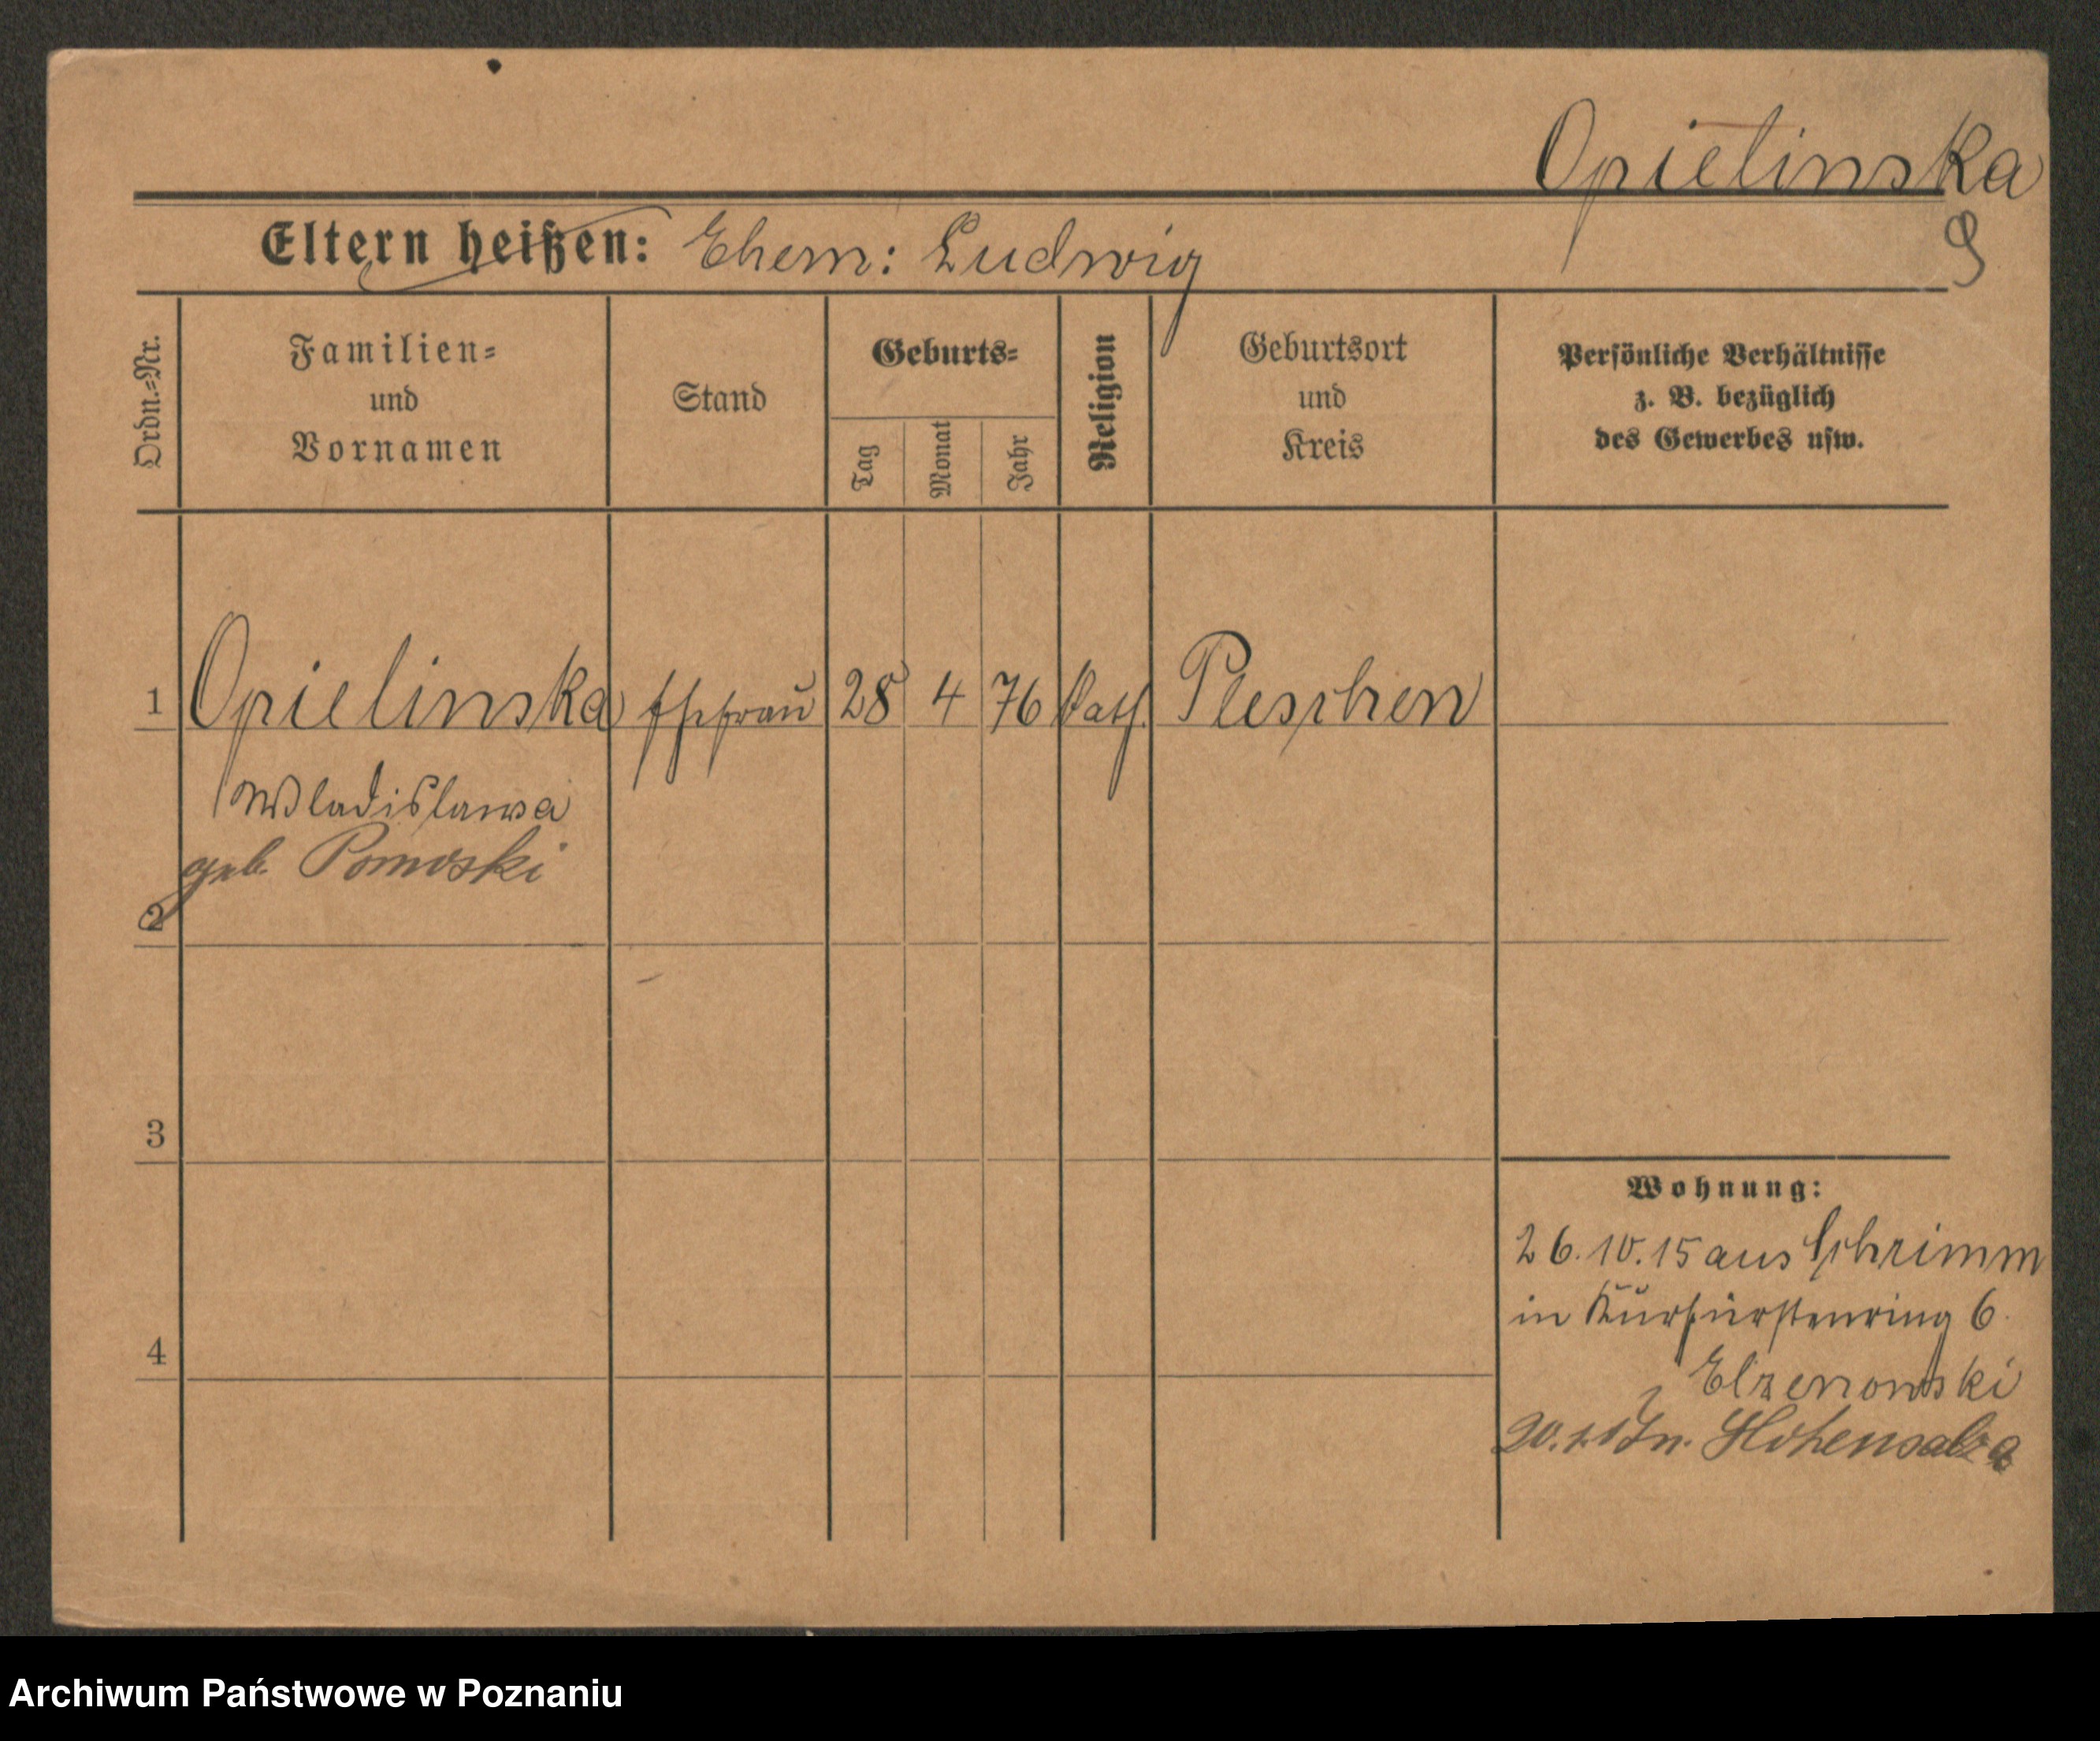 Opielinska
Eltern heißen: Ehem: Ludwig
Ordn.-Nr.
Familien-
und
Vornamen
Stand
Geburts-
Tag
Monat
Jahr
Religion
Geburtsort
und
Kreis
Persönliche Verhältnisse
z. B. bezüglich
des Gewerbes usw.
1 Opielinska Ehefrau 28 4 76 Kath. Pleschen
Wladislawa
geb. Pomorski
2
3
4
Wohnung:
26.10.15 aus Schrimm
in Kurfürstenring 6
n. Hohensalza
Archiwum Państwowe w Poznaniu